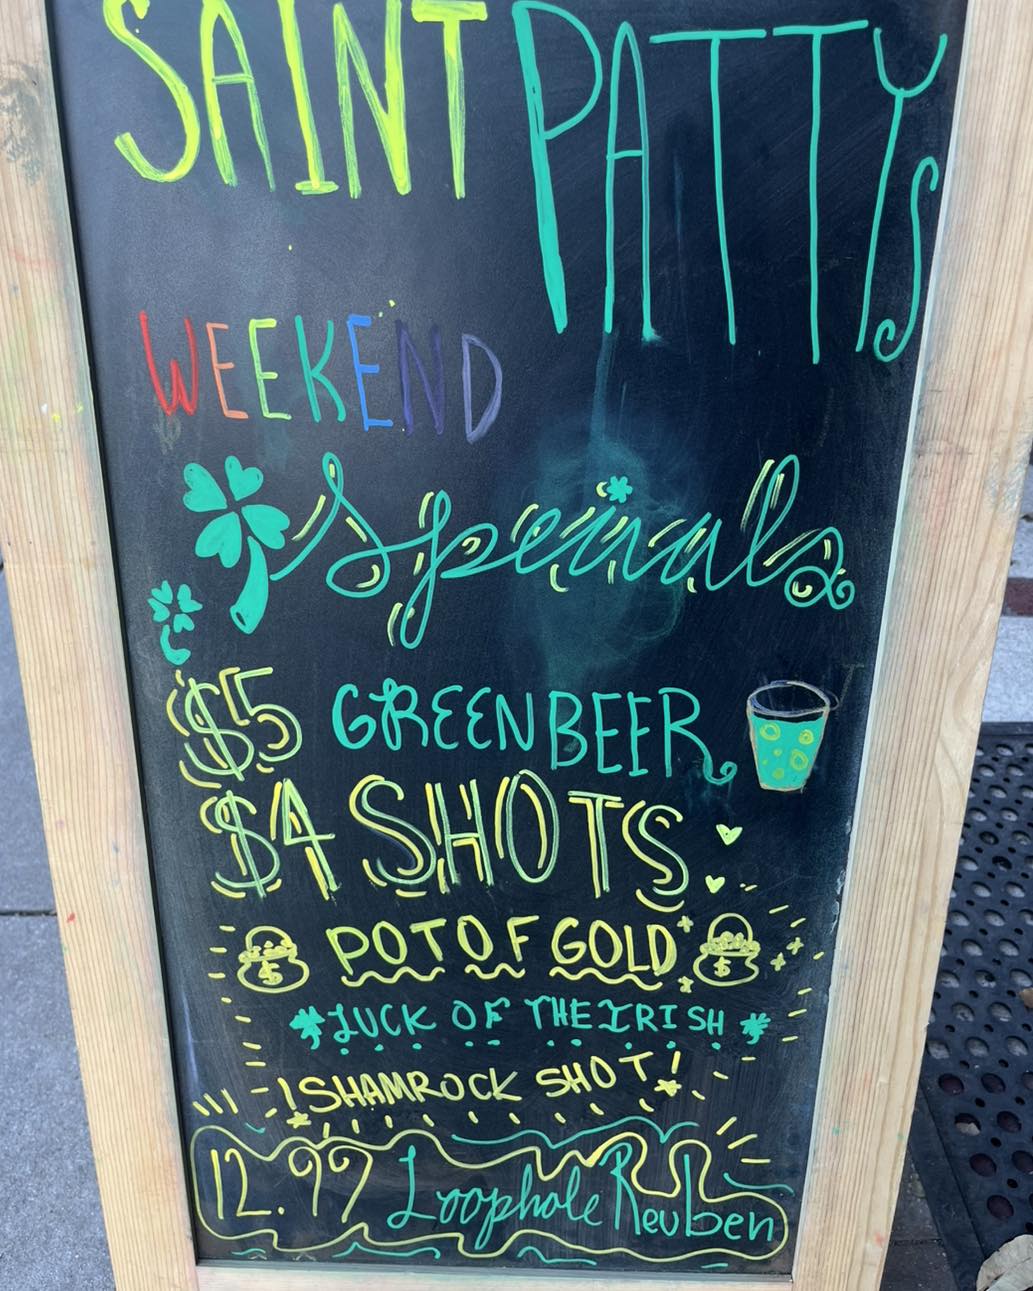 SAINT PATTYs
WEEKEND
Specials
$5 GREEN BEER
$4 SHOTS
POT OF GOLD
LUCK OF THE IRISH
! SHAMROCK SHOT!
12.97 Loophole Reuben